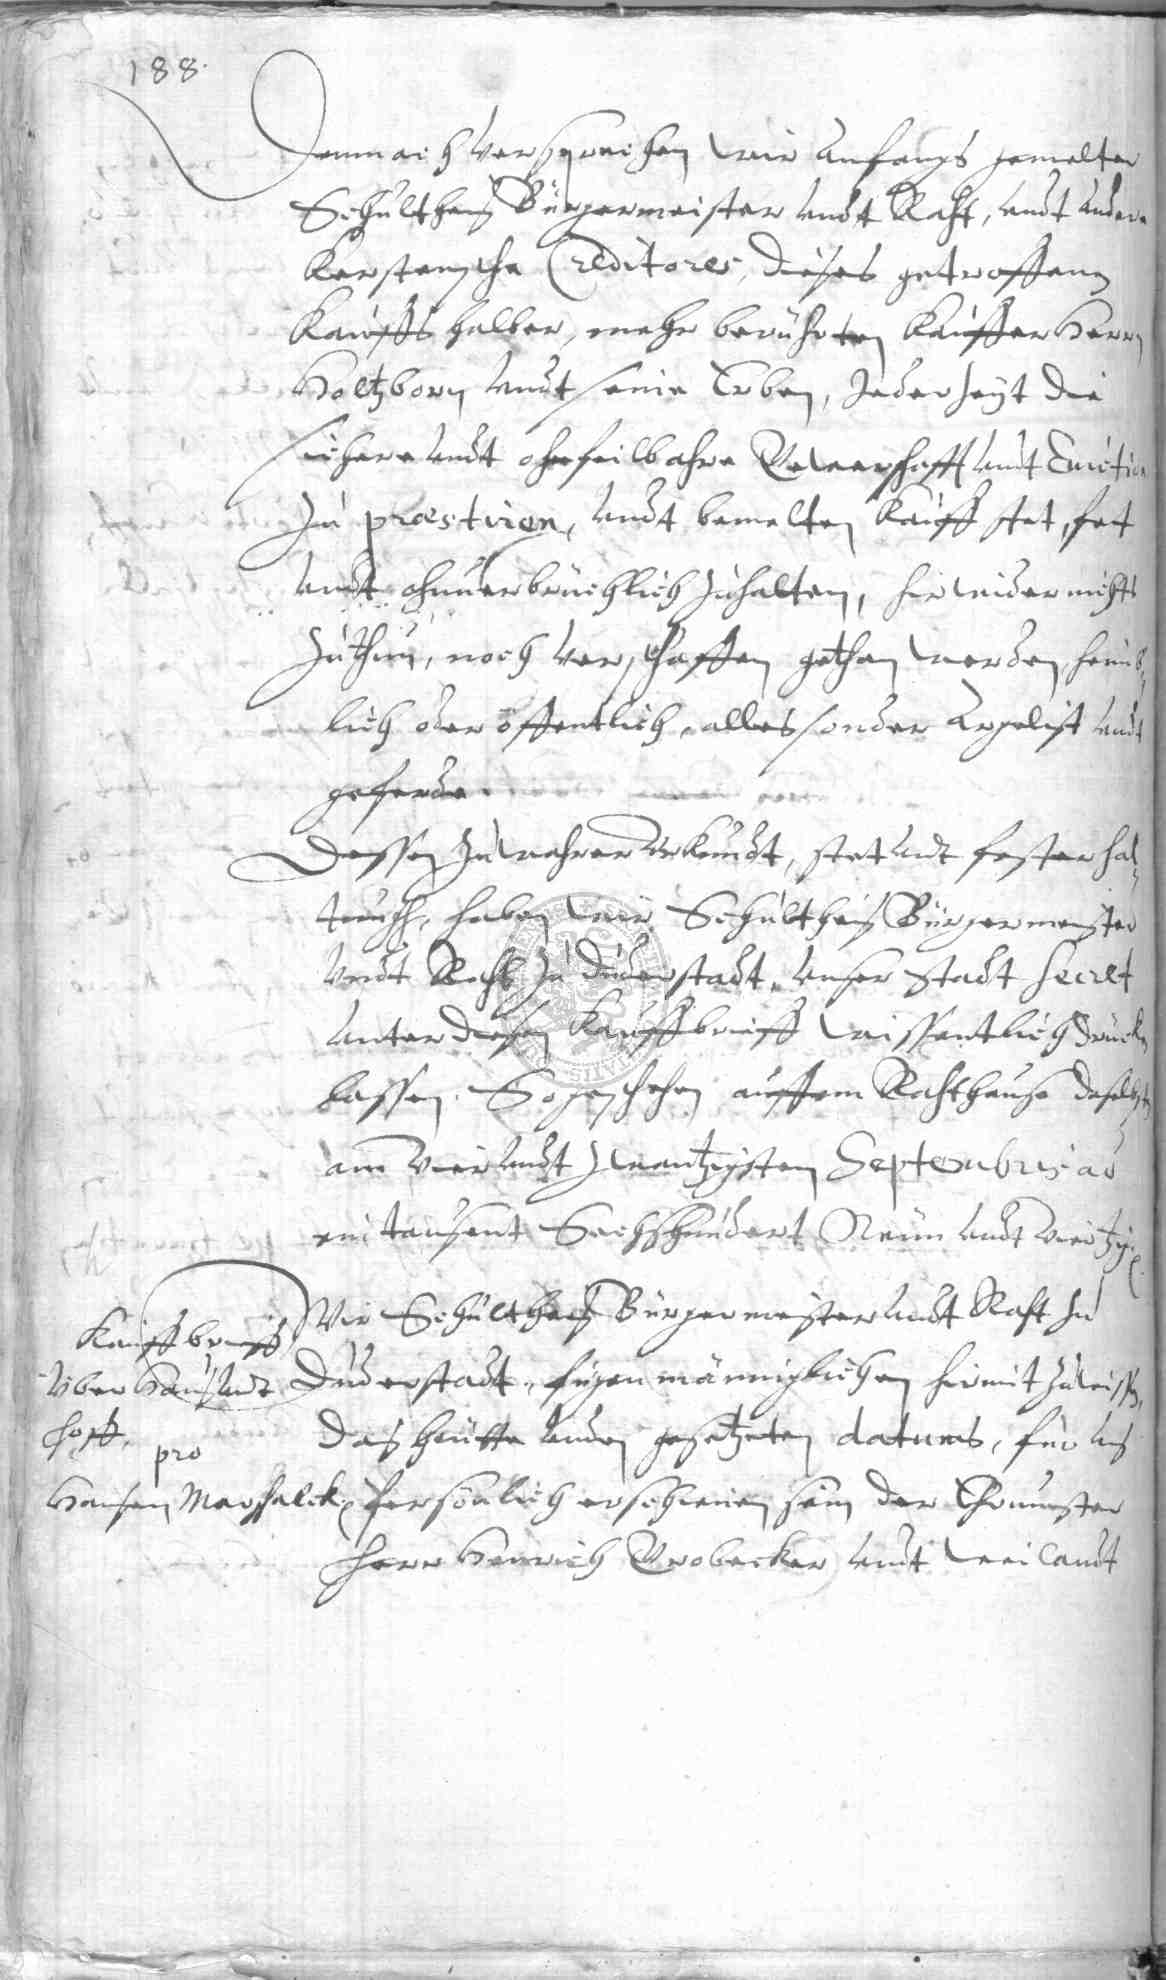 188.
Demnach versprechen wir Anfangs gemelter
Schultheiß Bürgermeister undt Raht, undt andere
Kerstensche Creditores, dieses getroffenen
Kauffs halber, mehr berührten Kauffer Herrn
Holtzborn undt seine Erben, Jederzeyt die
sichere undt ohnfeilbahre Wehrschafft undt Eviction
zu præstiren, undt bemelten Kauff stet, fest
undt ohnverbrüchlich zuhalten, hirwider nichts
zuthun, noch verschaffen gethan werden, heimb-
lich oder öffentlich, alles sonder Argelist undt
geferde
Dessen zu wahrer Urkundt, stet undt fester hal-
tungh, haben wir Schultheiß Bürgermeister
undt Raht zu Duderstadt, unser Stadt Secret
unter diesen Kauffbrieff wissentlich drücken
lassen. So geschehen auffem Rahthause daselbst
am vier undt zwantzigsten Septembris ao
eintausent Sechshundert Neun undt viertzig.
Kauffbrieff
über Hauß undt
Hoff,
pro
Hansen Marschalck
Wir Schultheiß Bürgermeister undt Raht zu
Duderstadt, fügen männiglichen hirmit zuwissen,
das heutte unden gesetzeten datums, für uns
persönlich erschienen sein der Ehrnvester
Herr Henrich Brobecker undt weilandt